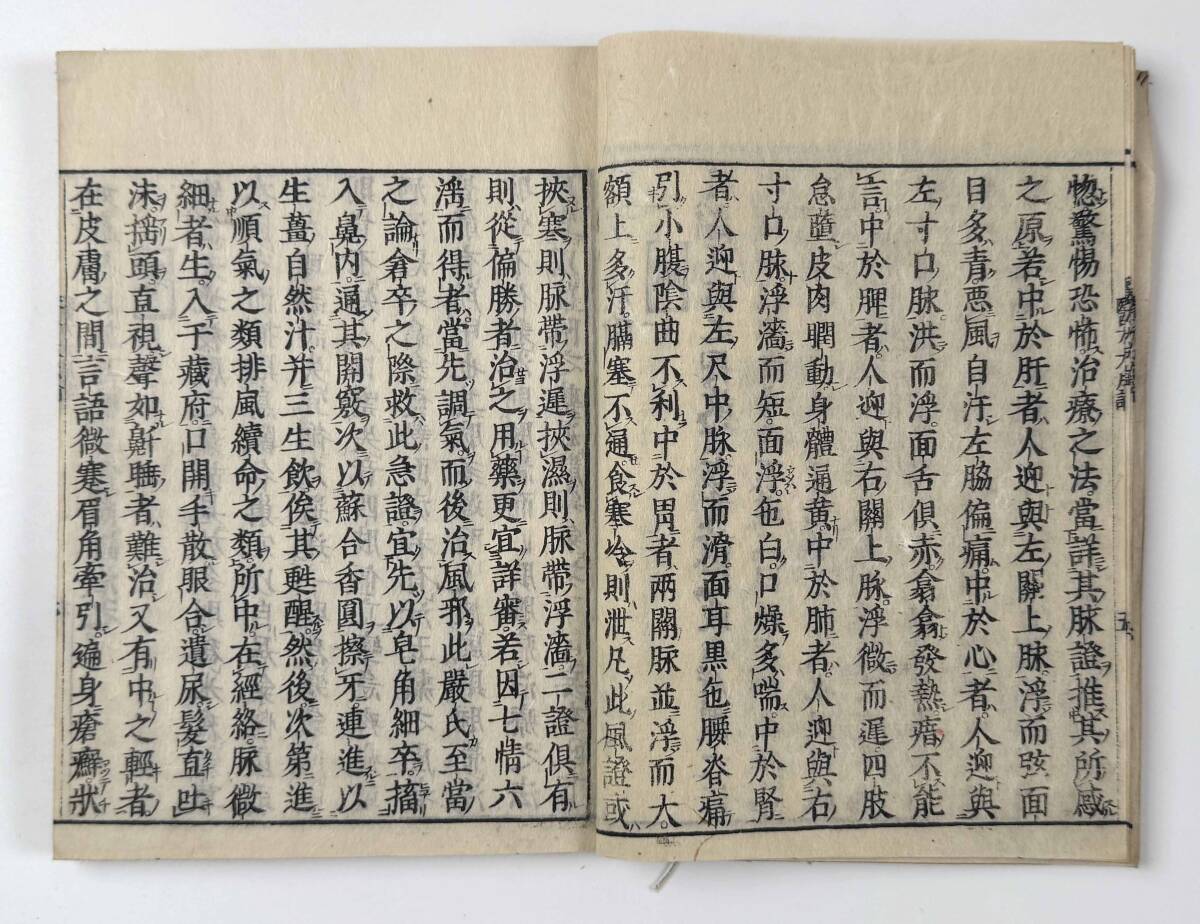 惚驚惕恐怖治療之法當詳其脉證推其所感
之原若中於肝者人迎與左關上脉浮而弦面
目多青惡風自汗左脇偏痛中於心者人迎與
左寸口脉洪而浮面舌俱赤翕翕發熱瘖不能
言中於脾者人迎與右關上脉浮微而遲四肢
怠墮皮肉瞤動身體通黄中於肺者人迎與右
寸口脉浮濇而短面浮色白口燥多喘中於腎
者人迎與左尺中脉浮而滑面耳黒色腰脊痛
引小腹隂曲不利中於胃者兩關脉並浮而大
額上多汗膈塞不通食寒冷則泄凡此風證或
挾寒則脉帶浮遲挾濕則脉帶浮濇二證俱有
則從偏勝者治之用藥更宜詳審若因七情六
淫而得者當先調氣而後治風邪此嚴氏至當
之論倉卒之際救此急證宜先以皂角細辛搐
入鼻内通其關竅次以蘇合香圓擦牙連進以
生薑自然汁并三生飲俟其甦醒然後次第進
以順氣之類排風續命之類所中在經絡脉微
細者生入于藏府口開手散眼合遺尿髮直吐
沫揺頭直視聲如鼾睡者難治又有中之輕者
在皮膚之間言語微蹇眉角牽引遍身瘡癬狀